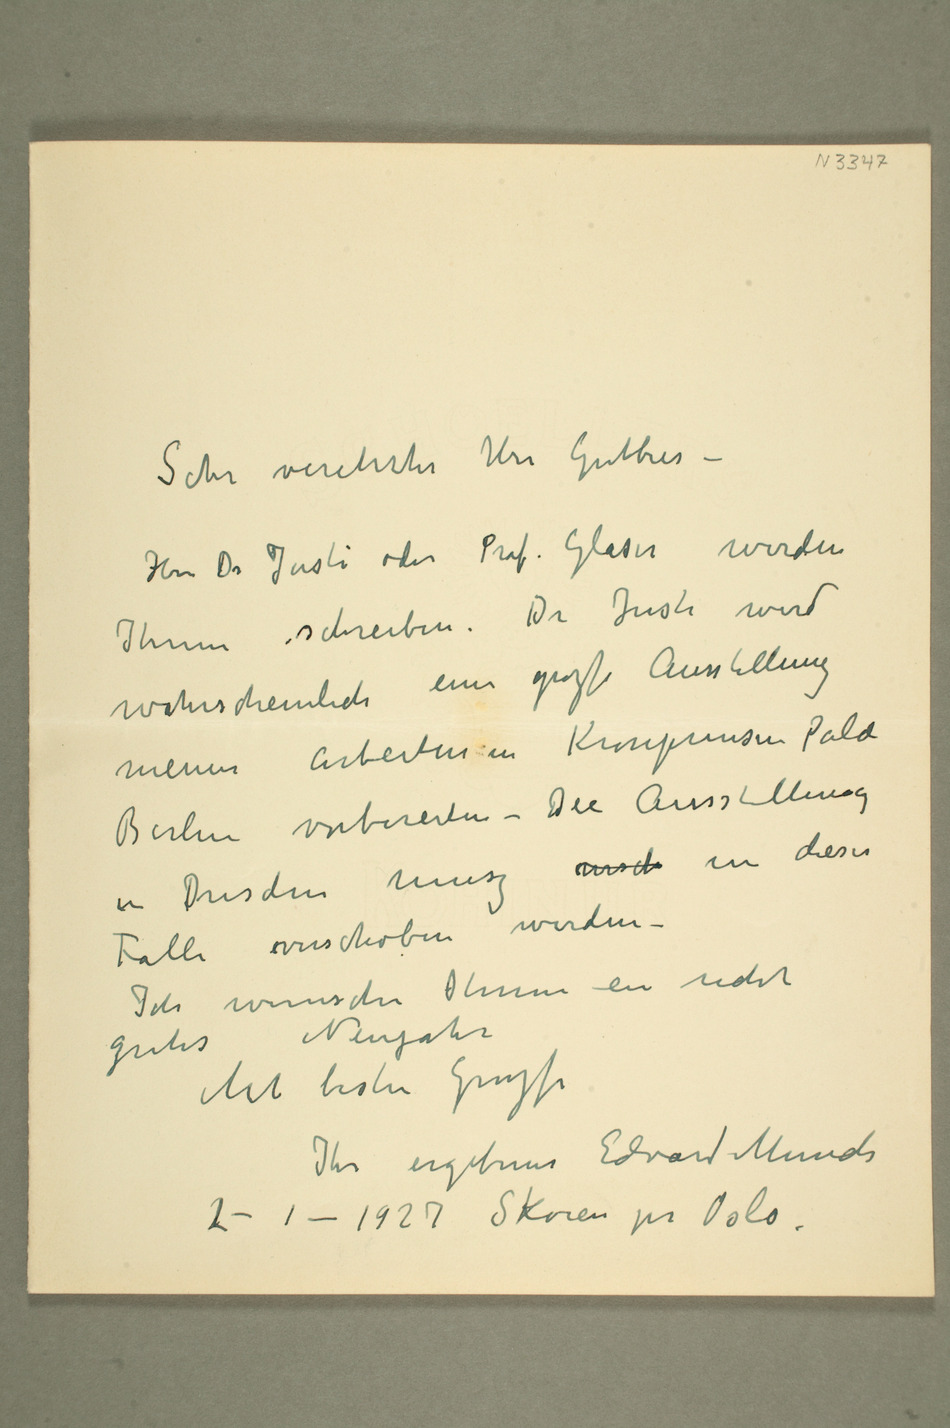 N 3347
Sehr verehrter Herr Gutbier –
Herr Dr Justi oder Prof. Glaser werden
Ihnen schreiben. Dr Justi wird
wahrscheinlich eine grosse Ausstellung
meiner Arbeiten in Kronprinsen Palä
Berlin vorbereiten – Die Ausstellung
in Dresden musz nich in dieser
Falle verschoben werden –
Ich wünsche Ihnen ein recht
gutes Neujahr
Mit besten Grusse
Ihr ergebener Edvard Munch
2 – 1 – 1927 Skøien pr Oslo.